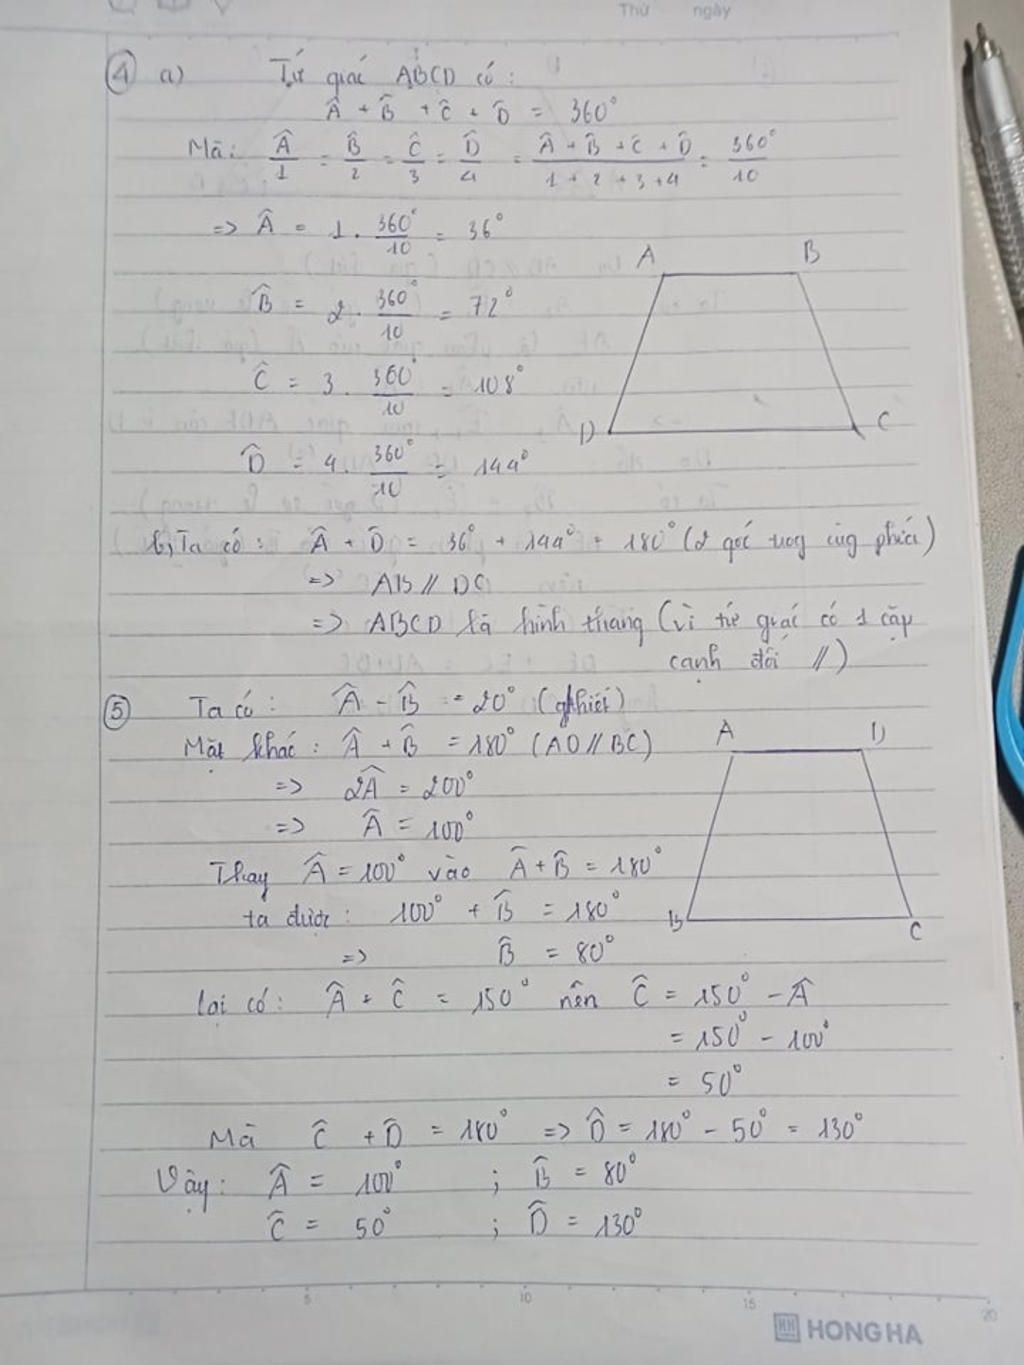 Thứ ngày
④ a) Tứ giác ABCD có:
Â + B̂ + Ĉ + D̂ = 360°
Mà: Â/1 = B̂/2 = Ĉ/3 = D̂/4 = (Â + B̂ + Ĉ + D̂)/(1 + 2 + 3 + 4) = 360°/10
=> Â = 1 . 360°/10 = 36°
A B
B̂ = 2 . 360°/10 = 72°
Ĉ = 3 . 360°/10 = 108°
D C
D̂ = 4 . 360°/10 = 144°
b, Ta có: Â + D̂ = 36° + 144° = 180° (2 góc trog cùg phía)
=> AB // DC
=> ABCD là hình thang (vì tứ giác có 1 cặp
cạnh đối //)
⑤ Ta có: Â - B̂ = 20° (gthiết)
Mặt khác: Â + B̂ = 180° (AD // BC)
A D
=> 2Â = 200°
=> Â = 100°
Thay Â = 100° vào Â + B̂ = 180°
ta được: 100° + B̂ = 180°
B C
=> B̂ = 80°
Lại có: Â + Ĉ = 150° nên Ĉ = 150° - Â
= 150° - 100°
= 50°
Mà Ĉ + D̂ = 180° => D̂ = 180° - 50° = 130°
Vậy: Â = 100° ; B̂ = 80°
Ĉ = 50° ; D̂ = 130°
5 10 15 20
HH HONG HA